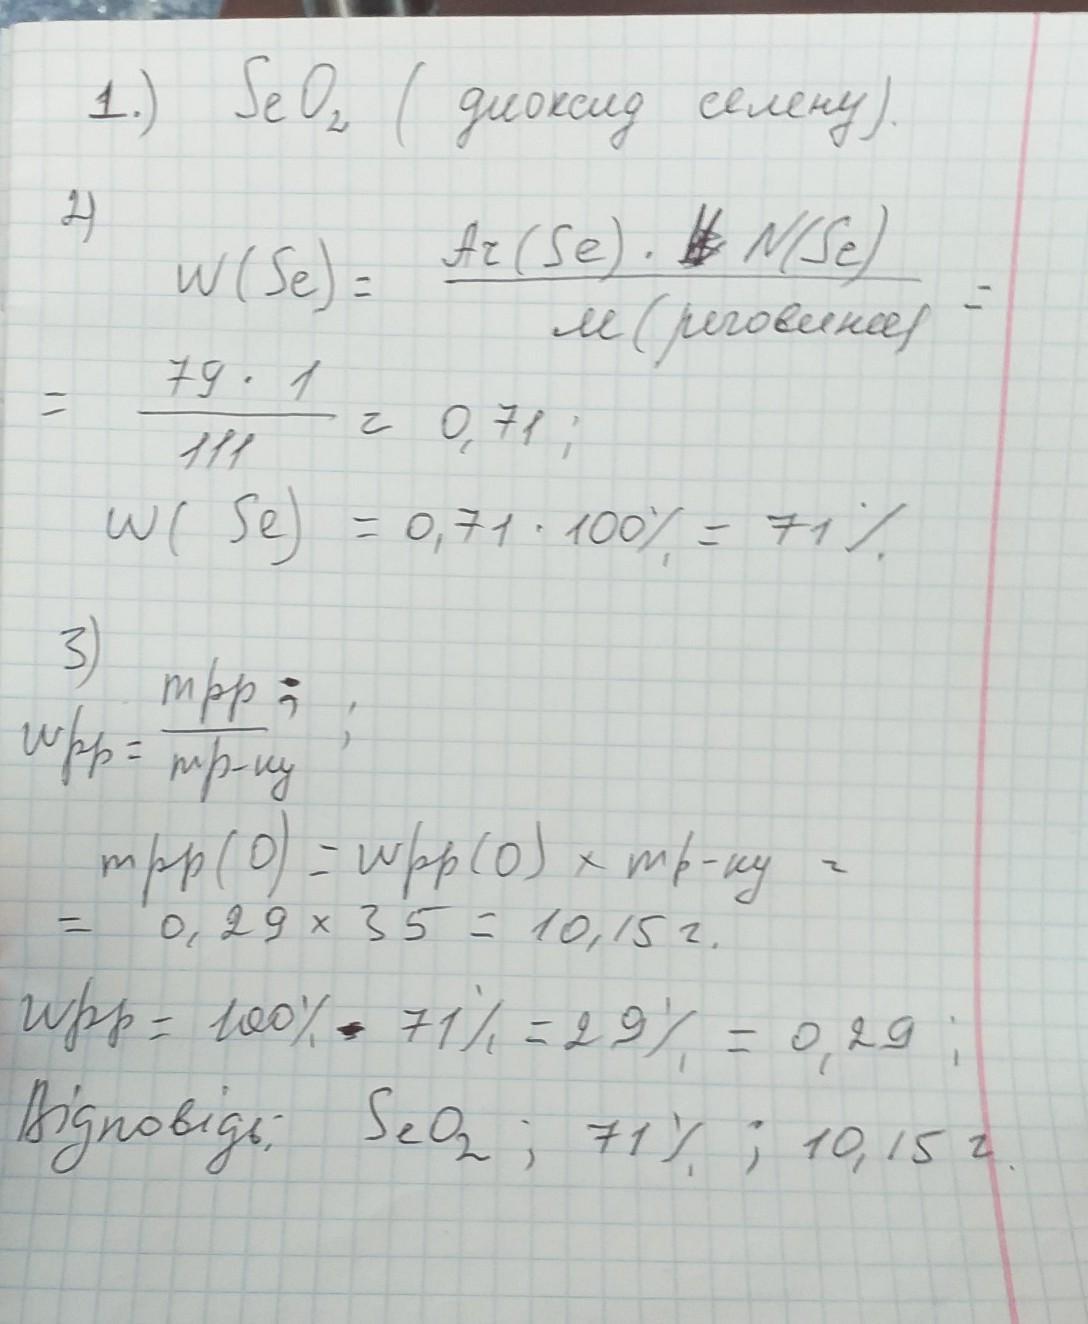 1.) SeO₂ (диоксид селену).
2)
W(Se) = Ar(Se) · N(Se) / M(речовини) =
= 79 · 1 / 111 = 0,71;
W(Se) = 0,71 · 100% = 71%.
3)
wpp = mpp / mp-ну ;
mpp(O) = wpp(O) × mp-ну =
= 0,29 × 35 = 10,15 г.
wpp = 100% - 71% = 29% = 0,29;
Відповідь: SeO₂ ; 71% ; 10,15 г.